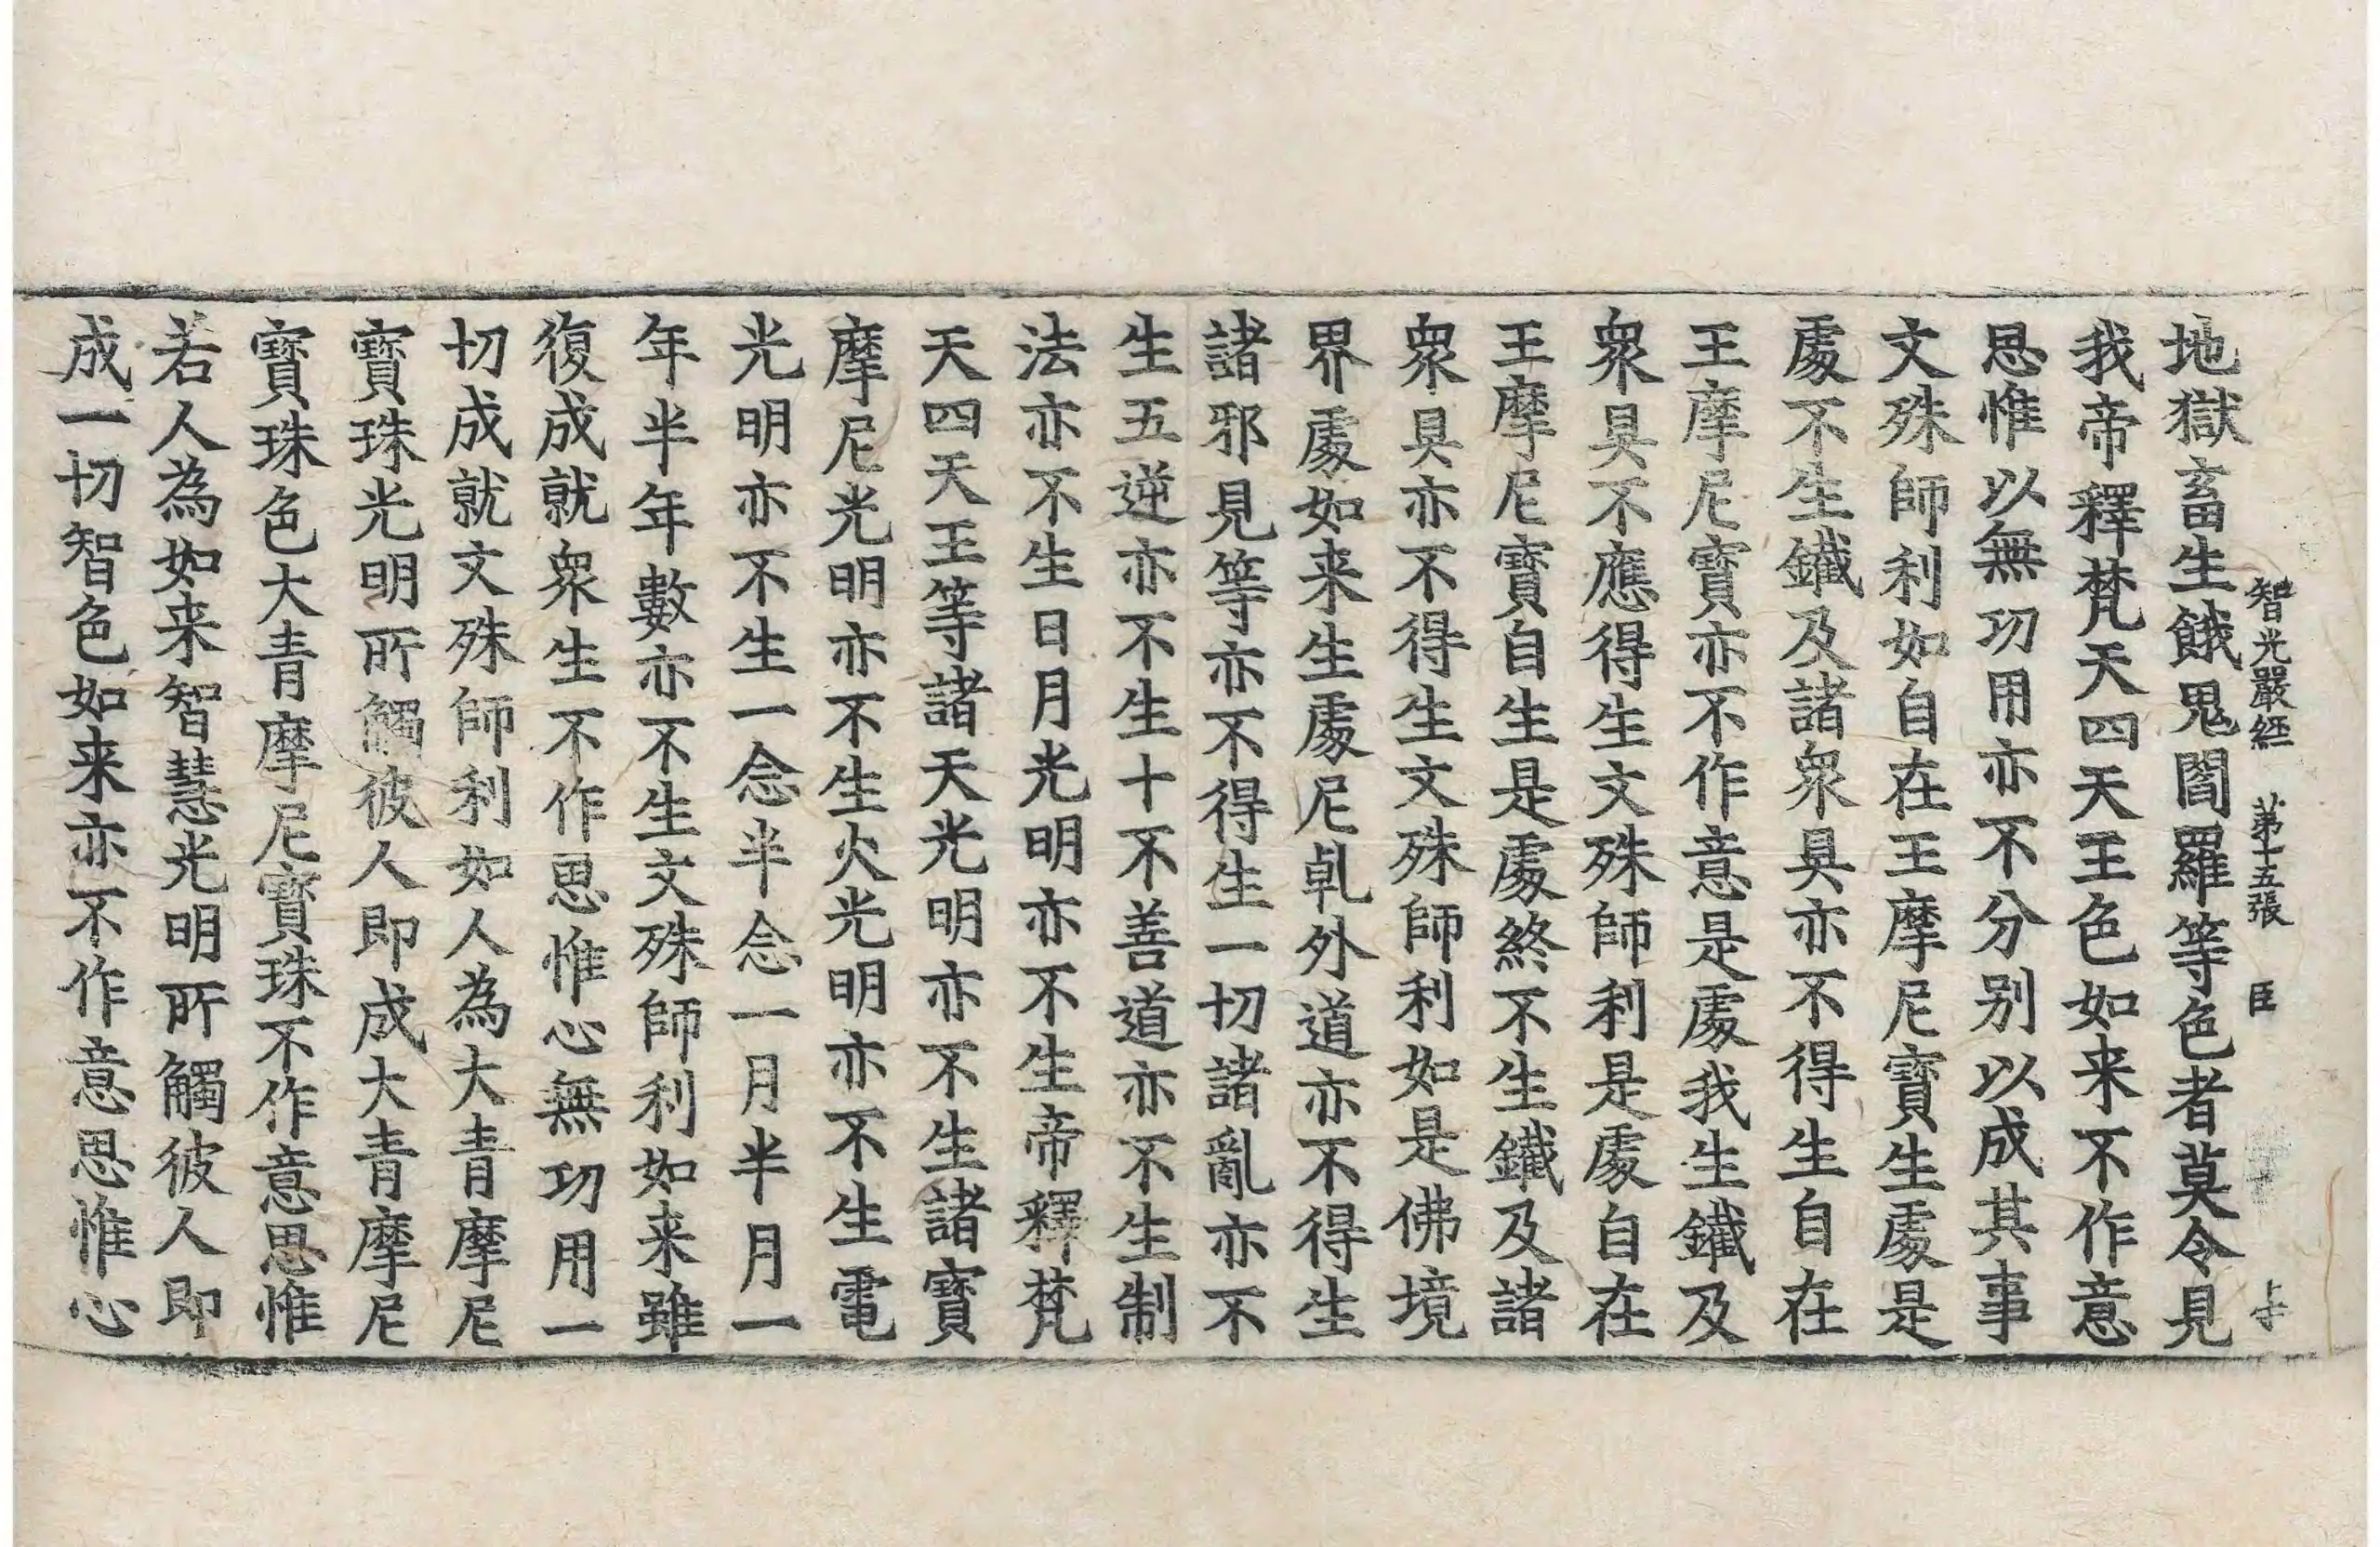 智光嚴經 第十五張 臣
地獄畜生餓鬼閻羅等色者莫令見
我帝釋梵天四天王色如来不作意
思惟以無功用亦不分別以成其事
文殊師利如自在王摩尼寶生處是
處不生鐵及諸衆具亦不得生自在
王摩尼寶亦不作意是處我生鐵及
衆具不應得生文殊師利是處自在
王摩尼寶自生是處終不生鐵及諸
衆具亦不得生文殊師利如是佛境
界處如来生處尼乹外道亦不得生
諸邪見等亦不得生一切諸亂亦不
生五逆亦不生十不善道亦不生制
法亦不生日月光明亦不生帝釋梵
天四天王等諸天光明亦不生諸寶
摩尼光明亦不生火光明亦不生電
光明亦不生一念半念一月半月一
年半年數亦不生文殊師利如来雖
復成就衆生不作思惟心無功用一
切成就文殊師利如人為大青摩尼
寶珠光明所觸彼人即成大青摩尼
寶珠色大青摩尼寶珠不作意思惟
若人為如来智慧光明所觸彼人即
成一切智色如来亦不作意思惟心